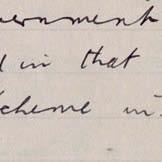 ernment
d in that
scheme in